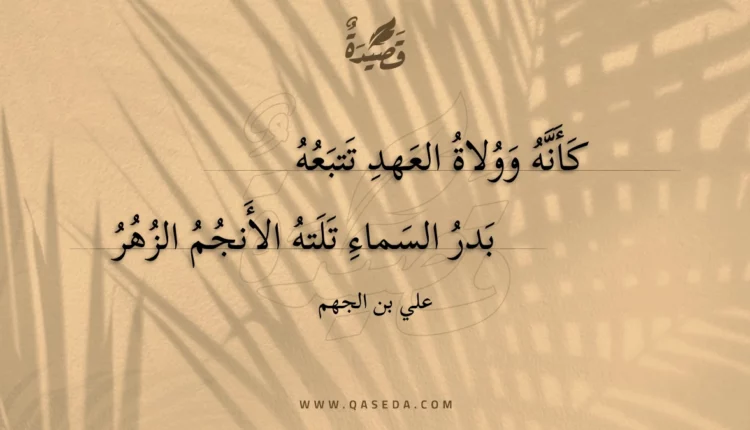 قَصِيدَةٌ
كَأَنَّهُ وَوُلاةُ العَهدِ تَتبَعُهُ
بَدرُ السَماءِ تَلَتهُ الأَنجُمُ الزُهُرُ
علي بن الجهم
WWW.QASEDA.COM